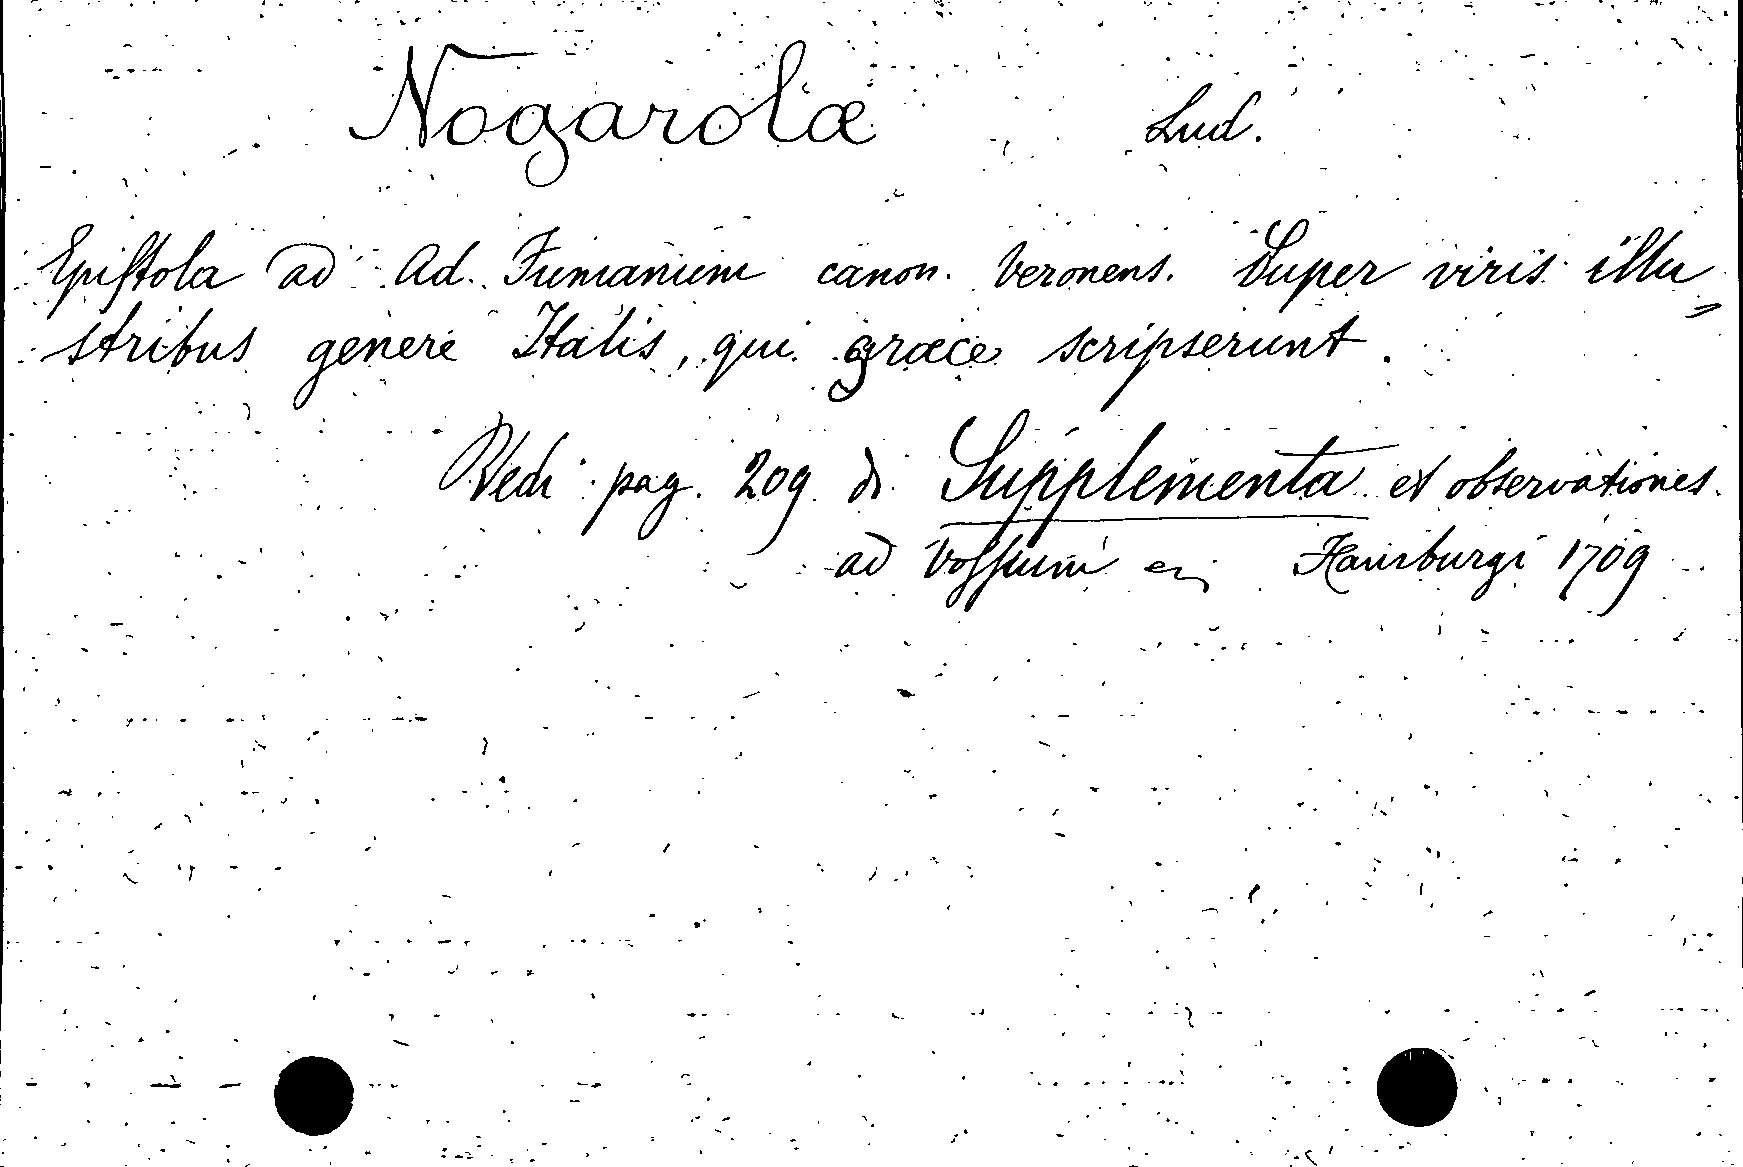 Nogarolæ Lud.
Epistola ad Ad. Fumanum canon. Veronens. Super viris illu=
stribus genere Italis, qui græce scripserunt.
Vedi pag. 209 di Supplementa et observationes
ad Vossium Hamburgi 1709